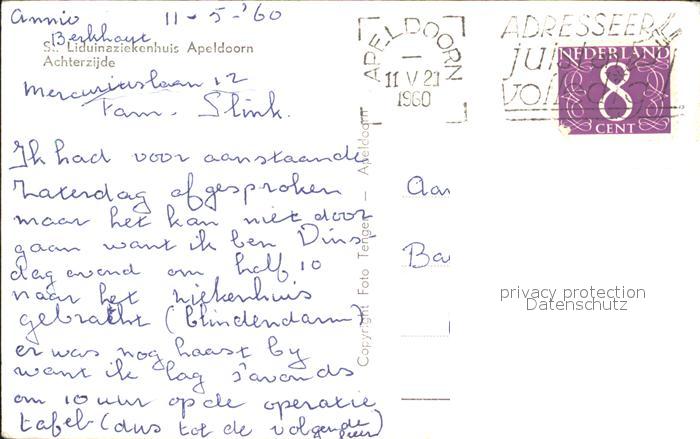 Annie 11-5-'60
Berkhout
St. Liduinaziekenhuis Apeldoorn
Achterzijde
Mercuriuslaan 12
Fam. Slink.
Ik had voor aanstaande
Zaterdag afgesproken
maar het kan niet door
gaan want ik ben Dins-
dag avond om half 10
naar het ziekenhuis
gebracht (blindendarm)
er was nog haast by
want ik lag s'avonds
om 10 uur op de operatie
tafel (dus tot de volgende
keer)
Copyright Foto Tenger — Apeldoorn
APELDOORN
11 V 21
1960
ADRESSEER
juist
vol
NEDERLAND
8
CENT
Aan
Ba
privacy protection
Datenschutz